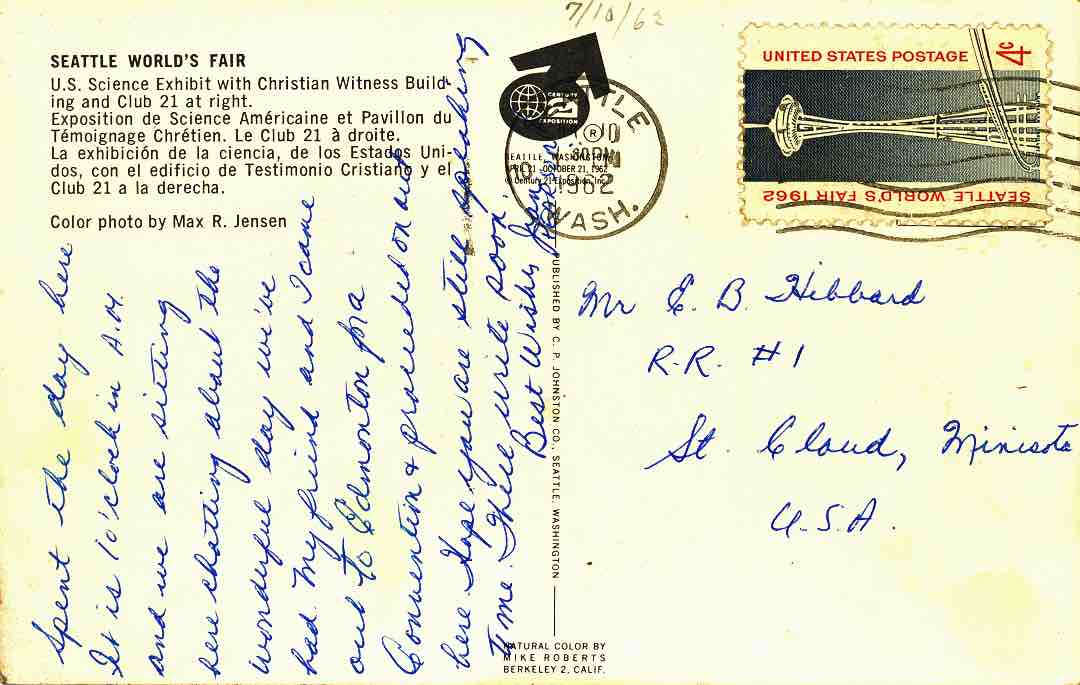 7/10/62
SEATTLE WORLD'S FAIR
U.S. Science Exhibit with Christian Witness Build-
ing and Club 21 at right.
Exposition de Science Américaine et Pavillon du
Témoignage Chrétien. Le Club 21 à droite.
La exhibición de la ciencia, de los Estados Uni-
dos, con el edificio de Testimonio Cristiano y el
Club 21 a la derecha.
Color photo by Max R. Jensen
CENTURY
21
EXPOSITION
®
SEATTLE, WASHINGTON
APRIL 21 - OCTOBER 21, 1962
© Century 21 Exposition, Inc.
SEATTLE
PM
1962
WASH.
UNITED STATES POSTAGE
4c
SEATTLE WORLD'S FAIR 1962
Spent the day here
It is 10 o'clock in A.M.
and we are sitting
here chatting about the
wonderful day we've
had. My friend and I came
out to Edmonton for a
Convention & proceeded on out
here. Hope you are still speaking
to me. I'll write soon.
Best Wishes
PUBLISHED BY C. P. JOHNSTON CO., SEATTLE, WASHINGTON
Mr E. B. Hibbard
R.R. #1
St. Cloud, Minisota
U.S.A.
NATURAL COLOR BY
MIKE ROBERTS
BERKELEY 2, CALIF.